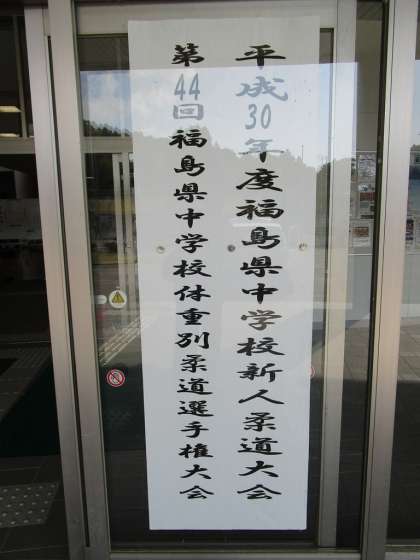 平成30年度福島県中学校新人柔道大会
第44回福島県中学校体重別柔道選手権大会